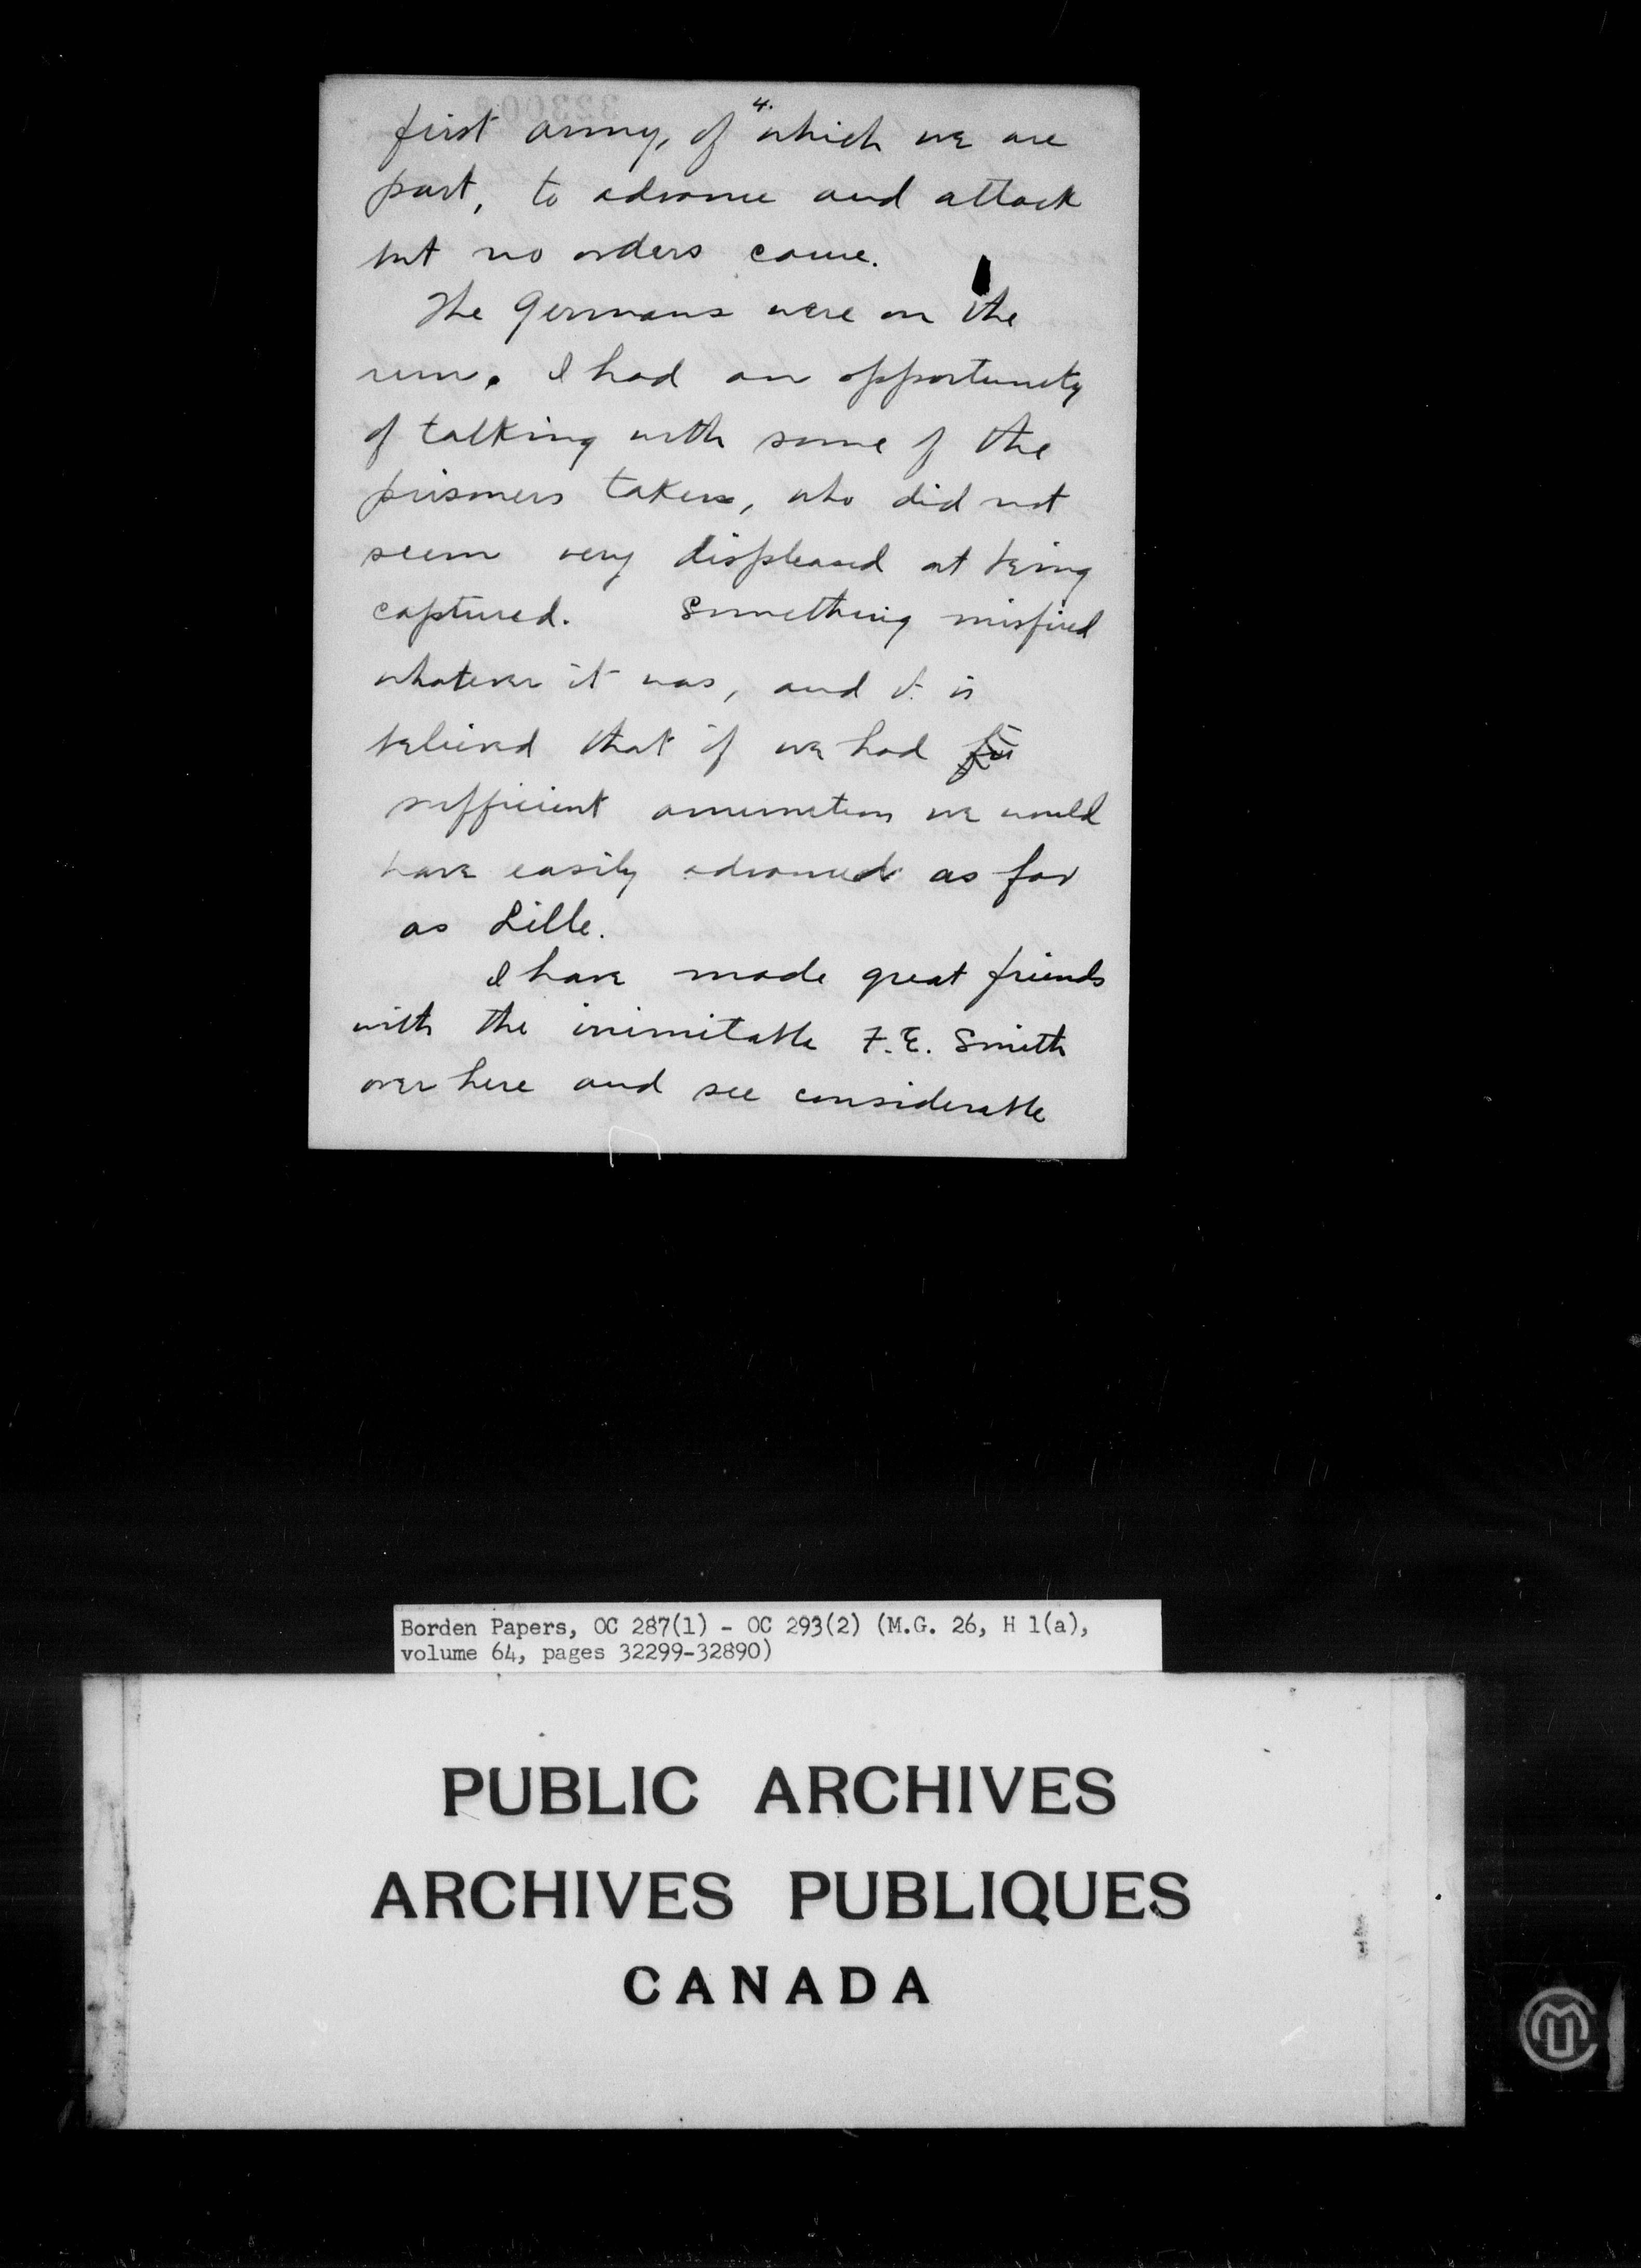 4.
first army, of which we are
part, to advance and attack
but no orders came.
The Germans were on the
run. I had an opportunity
of talking with some of the
prisoners taken, who did not
seem very displeased at being
captured. Something misfired
whatever it was, and it is
believed that if we had
sufficient amunition we would
have easily advanced as far
as Lille.
I have made great friends
with the inimitable F.E. Smith
over here and see considerable
Borden Papers, OC 287(1) - OC 293(2) (M.G. 26, H 1(a),
volume 64, pages 32299-32890)
PUBLIC ARCHIVES
ARCHIVES PUBLIQUES
CANADA